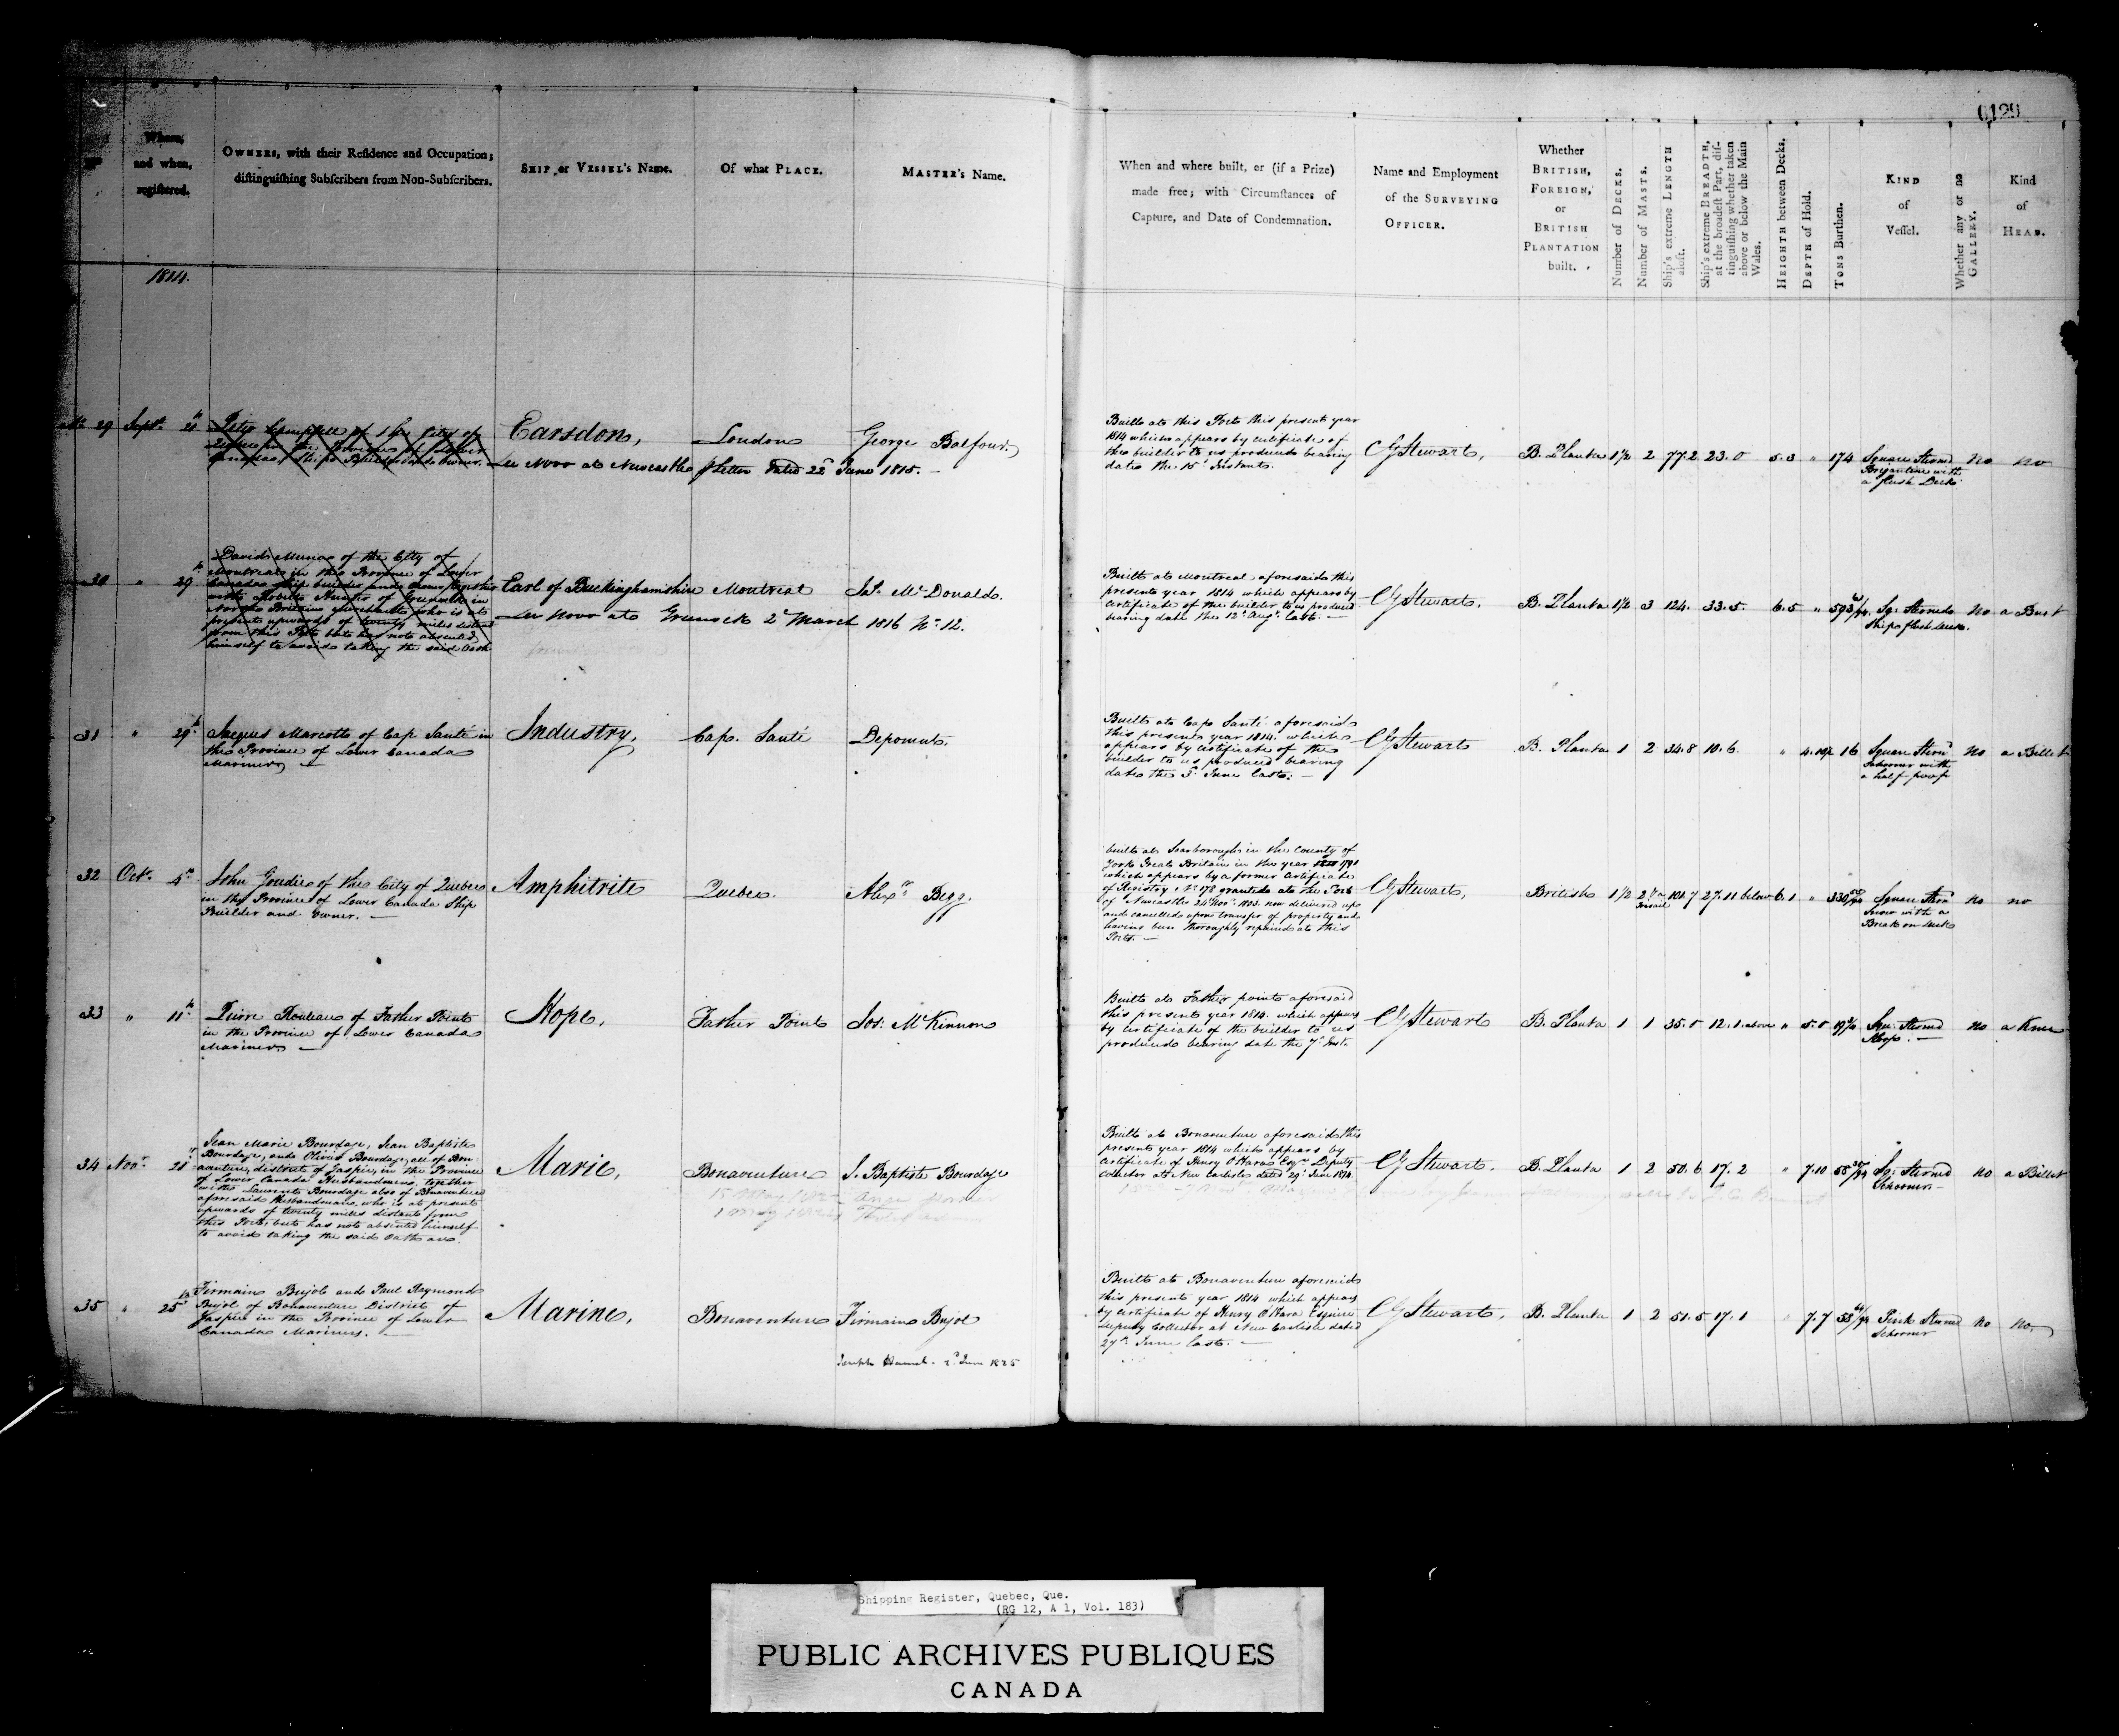 0129
No.
Where,
and when,
registered.
OWNERS, with their Residence and Occupation;
distinguishing Subscribers from Non-Subscribers.
SHIP or VESSEL's Name.
Of what PLACE.
MASTER's Name.
When and where built, or (if a Prize)
made free; with Circumstances of
Capture, and Date of Condemnation.
Name and Employment
of the SURVEYING
OFFICER.
Whether
BRITISH,
FOREIGN,
or
BRITISH
PLANTATION
built.
Number of DECKS.
Number of MASTS.
Ship's extreme LENGTH
aloft.
Ship's extreme BREADTH,
at the broadest Part, dis-
tinguishing whether taken
above or below the Main
Wales.
HEIGHTH between Decks.
DEPTH of Hold.
TONS Burthen.
KIND
of
Vessel.
Whether any or no
GALLERY.
Kind
of
HEAD.
1814.
No 29 Septr. 20th
Peter Campbell of the City of
Quebec in the Province of Lower
Canada Ship Builder and Owner.
Earsdon,
London
George Balfour.
De Novo at Newcastle p Letter dated 22d June 1815. —
Built at this Port this present year
1814 which appears by certificate of
the builder to us produced bearing
date the 15th Instant.
CG Stewart,
B. Planta 1½ 2 77.2 23.0 5.3 " 174
Square Sternd
Brigantine with
a flush Deck
no no
30 " 29th
David Munro of the City of
Montreal in the Province of Lower
Canada ship builder and owner together
with Robert Hunter of Greenock in
North Britain Merchant who is at
present upwards of twenty miles distant
from this Port but has not absented
himself to avoid taking the said Oath
Earl of Buckinghamshire
Montreal
Jas. McDonald.
De Novo at Greenock 2d March 1816 No. 12.
Built at Montreal aforesaid this
present year 1814 which appears by
certificate of the builder to us produced
bearing date the 12th Augt. last. —
CG Stewart.
B. Planta 1½ 3 124. 33.5. 6.5 " 593
Sq: Sternd
Ship flush deck.
no a Bust
31 " 29th
Jacques Marcotte of Cap Santé in
the Province of Lower Canada
Mariner —
Industry,
Cap. Santé
Deponent.
Built at Cap Santé aforesaid
this present year 1814. which
appears by certificate of the
builder to us produced bearing
date the 5th June last. —
CG Stewart
B. Planta 1 2 34.8 10.6. " 4.10½ 16
Square Sternd
Schooner with
a half poop
no a Billet
32 Octr. 4th
John Goudie of the City of Quebec
in the Province of Lower Canada Ship
Builder and Owner. —
Amphitrite
Quebec.
Alexr. Begg.
built at Scarborough in the County of
York Great Britain in the year 1791
which appears by a former Certificate
of Registry No. 178 granted at the Port
of Newcastle 24th Novr. 1803. now delivered up
and cancelled upon transfer of property and
having been thoroughly repaired at this
Port. —
CG Stewart,
British 1½ 2 101.7 27.11 below 6.1 " 330
Square Stern
Snow with a
Break on deck
no no
33 " 11th
Pierre Rouleau of Father Point
in the Province of Lower Canada
Mariner. —
Hope,
Father Point
Jos: McKinnon
Built at Father point aforesaid
this present year 1814. which appears
by certificate of the builder to us
produced bearing date the 7th Inst.
CG Stewart
B. Planta 1 1 35.0 12.1. above " 5.0 19
Squ: Sternd
Sloop. —
no a Knee
34 Novr. 21st
Jean Marie Bourdage, Jean Baptiste
Bourdage, and Olivier Bourdage, all of Bon-
aventure, district of Gaspie, in the Province
of Lower Canada Husbandmen, together
with Laurent Bourdage also of Bonaventure
aforesaid Husbandman, who is at present
upwards of twenty miles distant from
this Port, but has not absented himself
to avoid taking the said Oath
Marie,
Bonaventure
J. Baptiste Bourdage
Built at Bonaventure aforesaid this
present year 1814 which appears by
certificate of Henry O'Hara Esqr. Deputy
Collector at New Carlisle dated 29th June 1814.
CG Stewart.
B. Planta 1 2 50.6 17.2 " 7.10 55
Sq: Sternd
Schooner —
no a Billet
35 " 25th
Firmain Bujol and Paul Raymond
Bujol of Bonaventure District of
Gaspie in the Province of Lower
Canada Mariners. —
Marine,
Bonaventure
Firmain Bujol
Joseph Hamel. 2d June 1825
Built at Bonaventure aforesaid
this present year 1814 which appears
by certificate of Henry O'Hara Esquire
Deputy Collector at New Carlisle dated
27th June last. —
CG Stewart,
B. Planta 1 2 51.5 17.1 " 7.7 58
Pink Sternd
Schooner
no no
Shipping Register, Quebec, Que.
(RG 12, A 1, Vol. 183)
PUBLIC ARCHIVES PUBLIQUES
CANADA